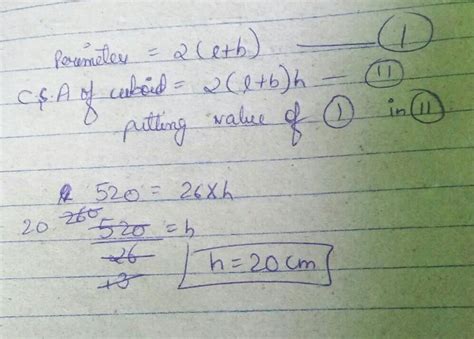 Perimeter = 2(l+b) —— (I)
C.S.A of cuboid = 2(l+b)h — (II)
putting value of (I) in (II)
520 = 26×h
20 260 520 = h
26
13
h = 20 cm